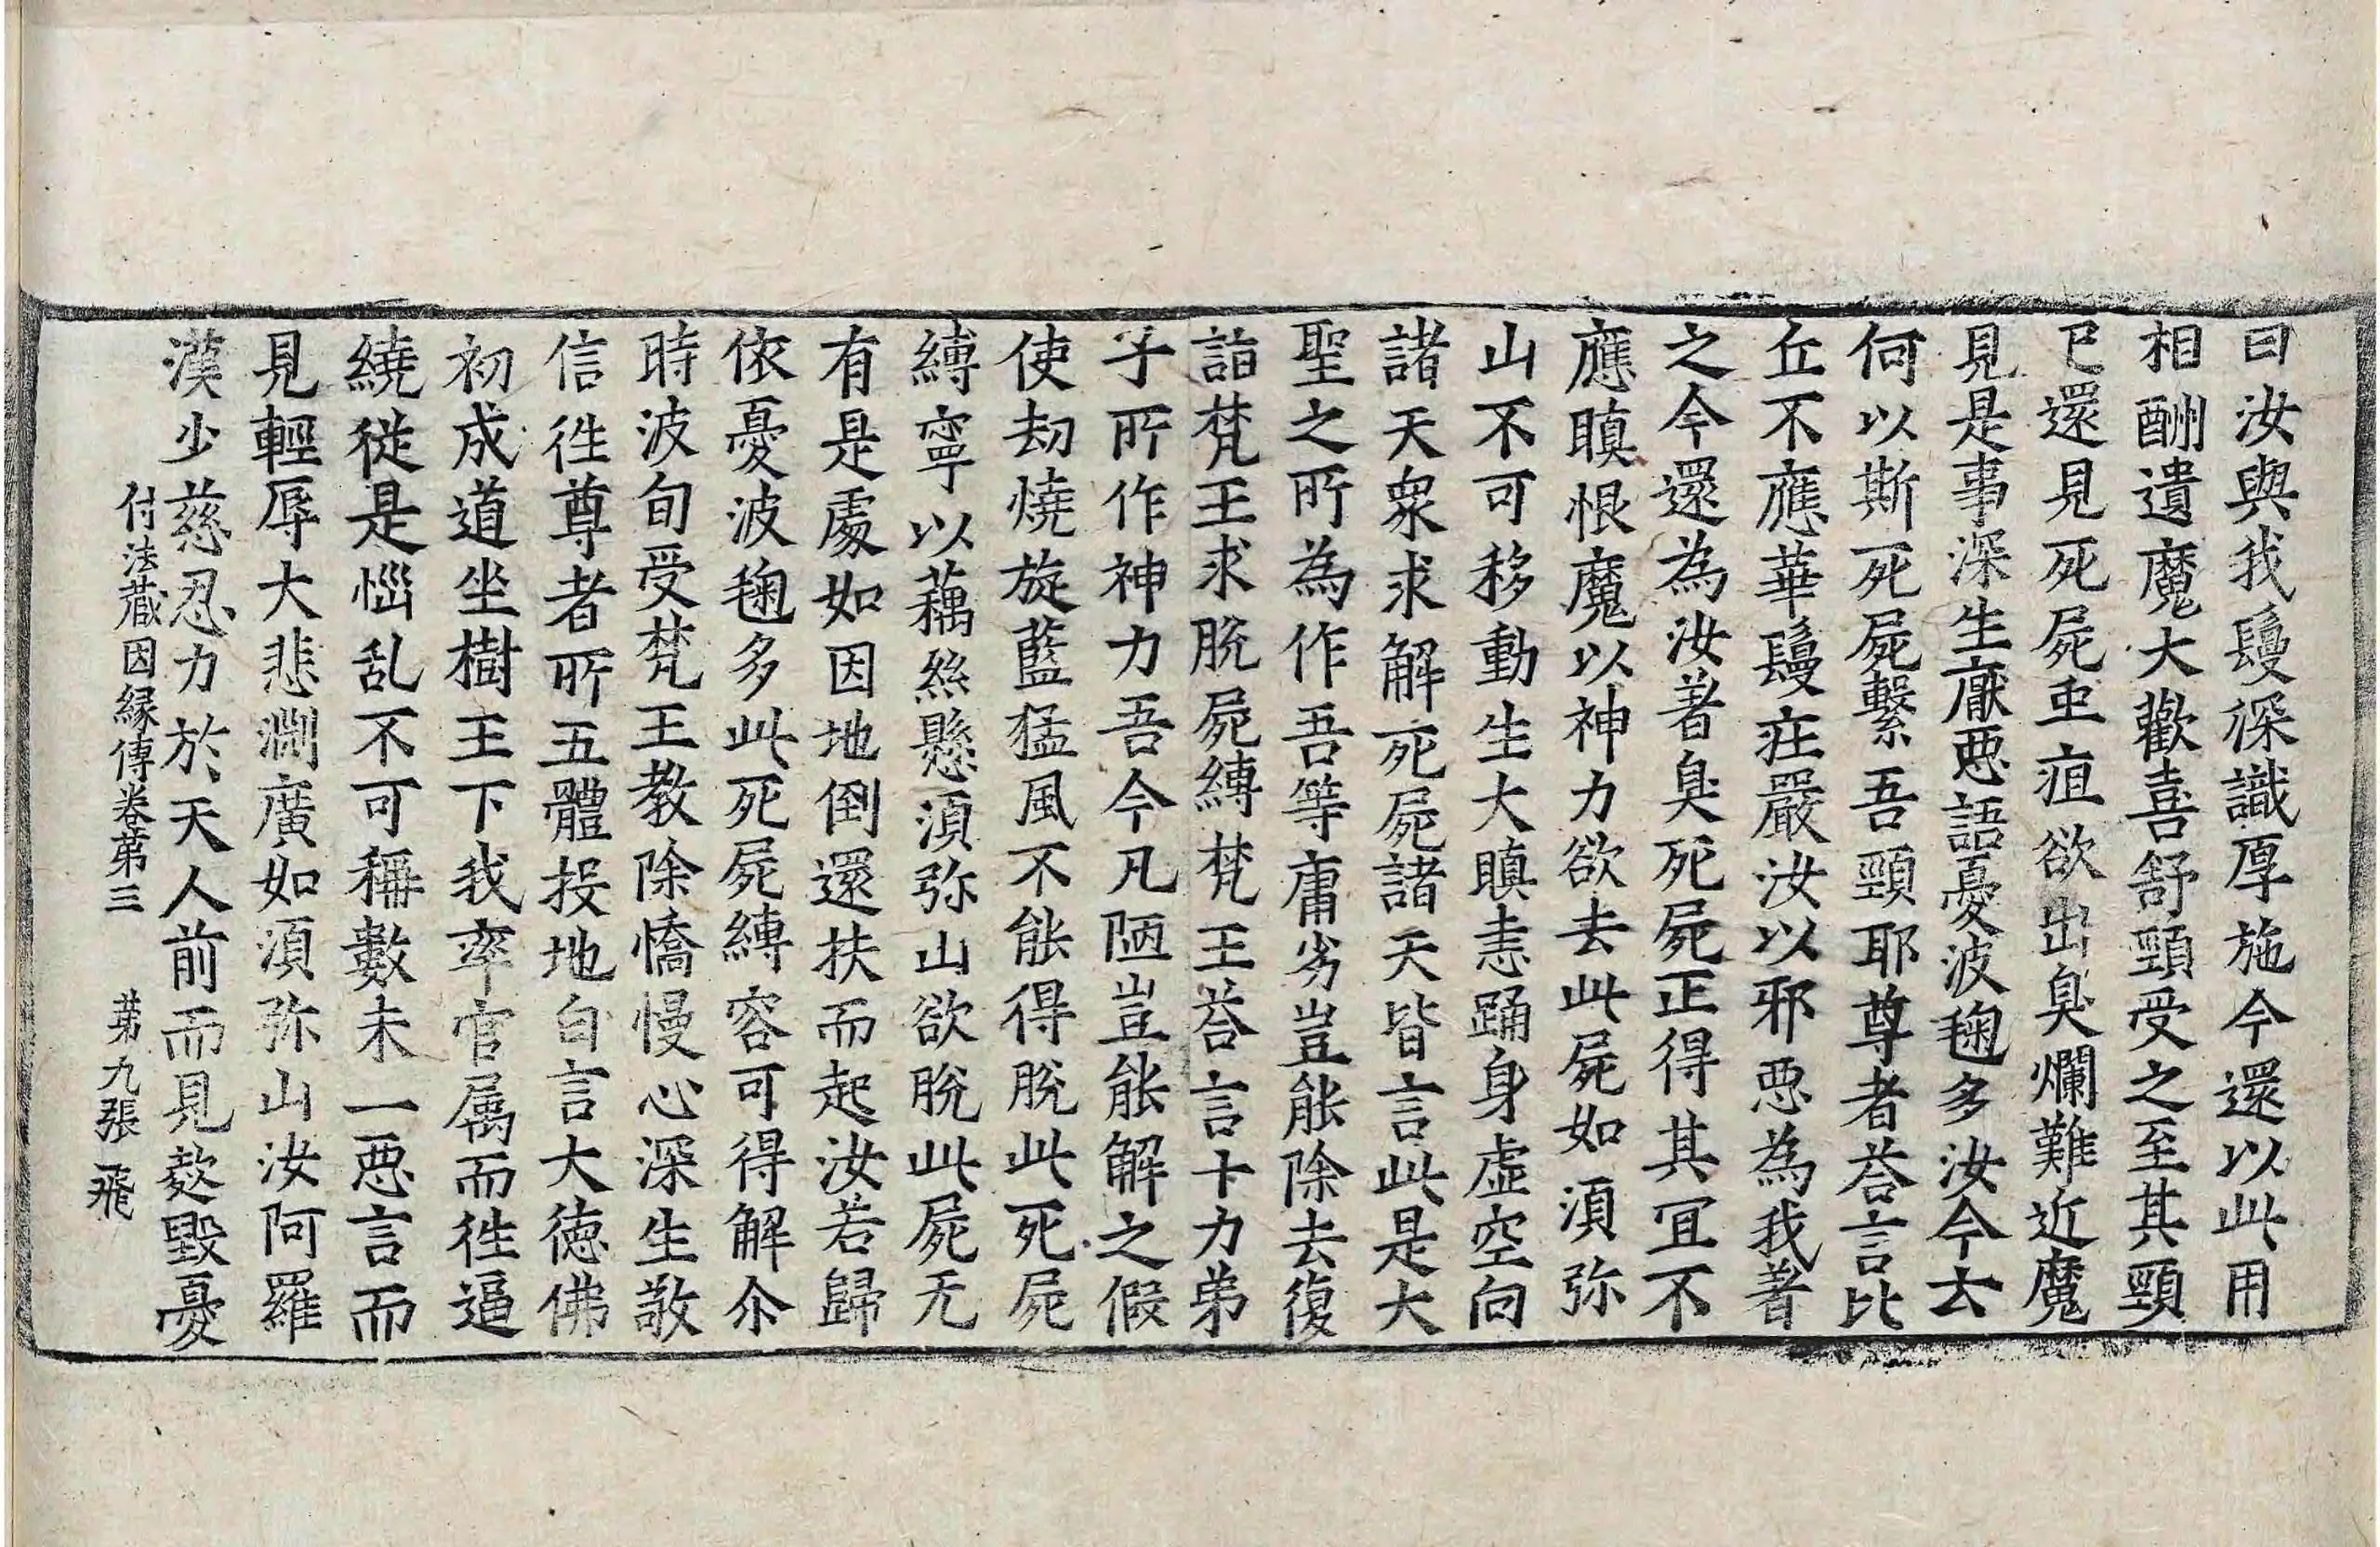 曰汝與我鬘深識厚施今還以此用
相酬遺魔大歡喜舒頸受之至其頸
已還見死屍虫疽欲出臭爛難近魔
見是事深生厭惡語憂波毱多汝今云
何以斯死屍繫吾頸耶尊者荅言比
丘不應華鬘莊嚴汝以邪惡為我著
之今還為汝著臭死屍正得其冝不
應瞋恨魔以神力欲去此屍如湏弥
山不可移動生大瞋恚踊身虛空向
諸天衆求解死屍諸天皆言此是大
聖之所為作吾等庸劣豈能除去復
詣梵王求脫屍縛梵王荅言十力弟
子所作神力吾今凡陋豈能解之假
使劫燒旋藍猛風不能得脫此死屍
縛寧以藕絲懸湏弥山欲脫此屍无
有是處如因地倒還扶而起汝若歸
依憂波毱多此死屍縛容可得解尒
時波旬受梵王教除憍慢心深生敬
信徃尊者所五體投地白言大德佛
初成道坐樹王下我率官属而徃逼
繞從是惱乱不可稱數未一惡言而
見輕辱大悲淵廣如湏弥山汝阿羅
漢少慈忍力於天人前而見欺毀憂
付法藏因緣傳卷第三　第九張　飛